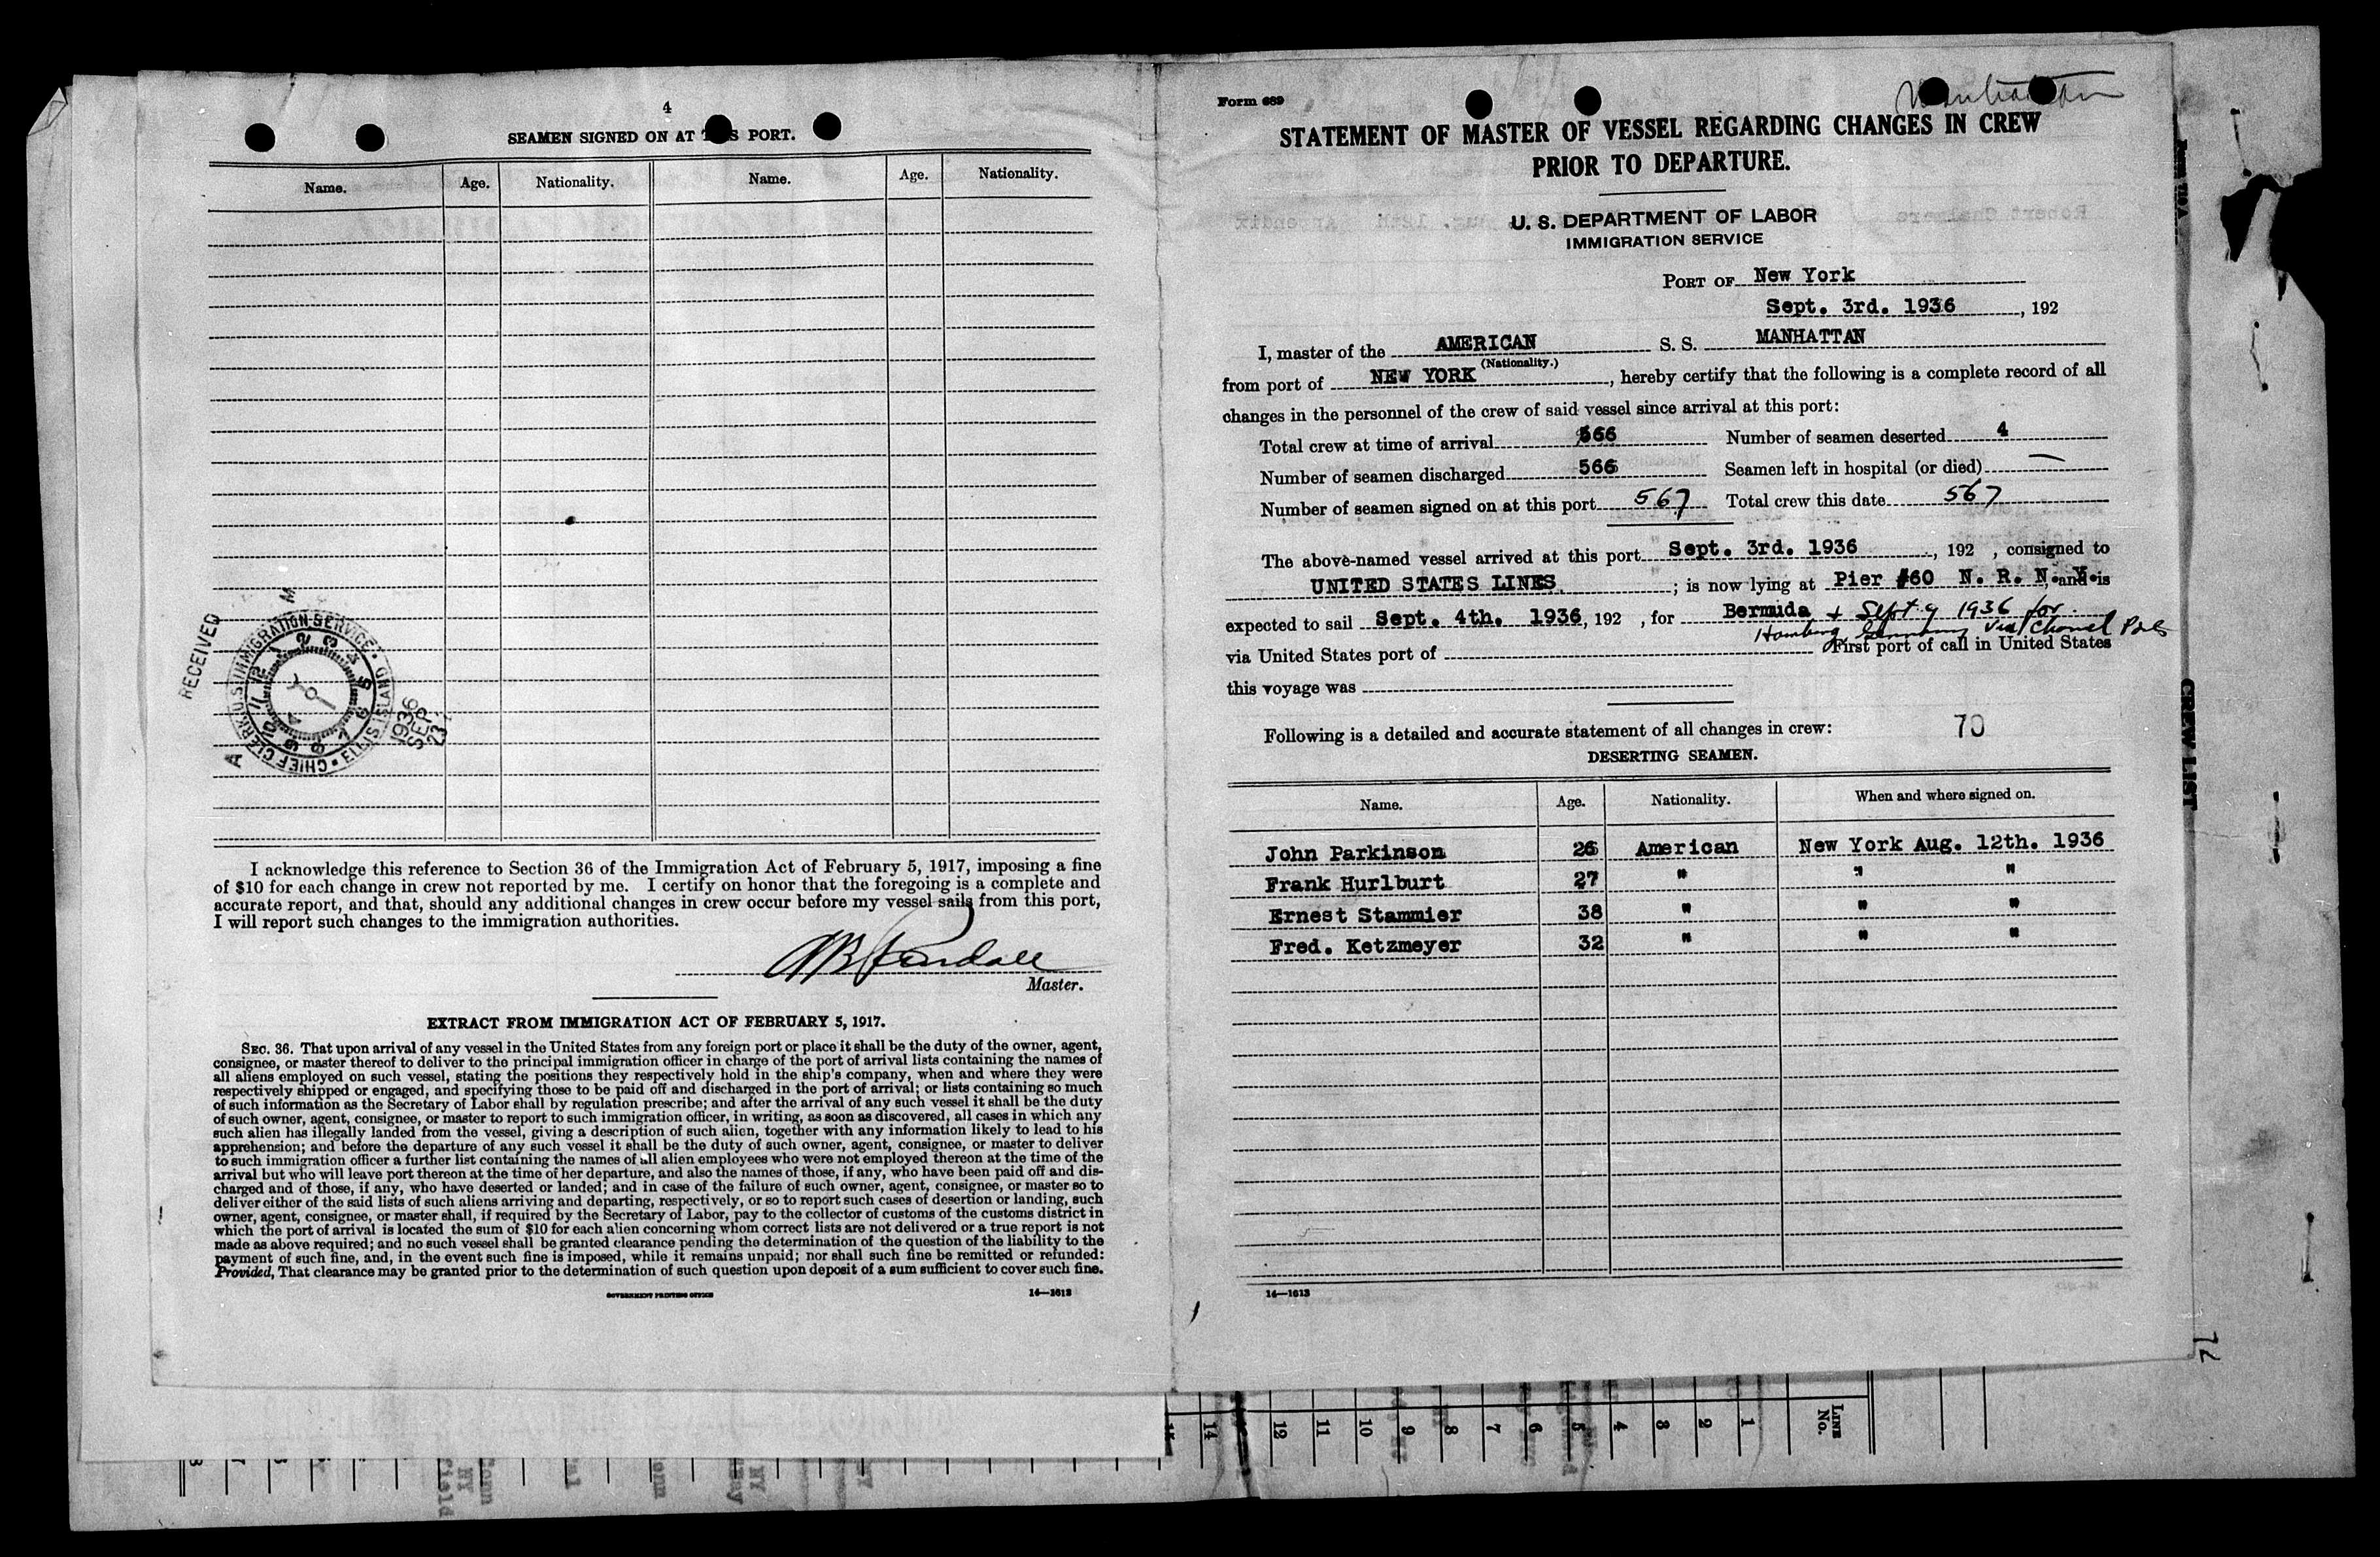 4
SEAMEN SIGNED ON AT THIS PORT.
Name. Age. Nationality. Name. Age. Nationality.
RECEIVED
A M
CHIEF CLERK U.S. IMMIGRATION SERVICE • ELLIS ISLAND •
12 1 2 3 4 5 6 7 8 9 10 11
1936
SEP
23
I acknowledge this reference to Section 36 of the Immigration Act of February 5, 1917, imposing a fine
of $10 for each change in crew not reported by me. I certify on honor that the foregoing is a complete and
accurate report, and that, should any additional changes in crew occur before my vessel sails from this port,
I will report such changes to the immigration authorities.
Master.
EXTRACT FROM IMMIGRATION ACT OF FEBRUARY 5, 1917.
SEC. 36. That upon arrival of any vessel in the United States from any foreign port or place it shall be the duty of the owner, agent,
consignee, or master thereof to deliver to the principal immigration officer in charge of the port of arrival lists containing the names of
all aliens employed on such vessel, stating the positions they respectively hold in the ship's company, when and where they were
respectively shipped or engaged, and specifying those to be paid off and discharged in the port of arrival; or lists containing so much
of such information as the Secretary of Labor shall by regulation prescribe; and after the arrival of any such vessel it shall be the duty
of such owner, agent, consignee, or master to report to such immigration officer, in writing, as soon as discovered, all cases in which any
such alien has illegally landed from the vessel, giving a description of such alien, together with any information likely to lead to his
apprehension; and before the departure of any such vessel it shall be the duty of such owner, agent, consignee, or master to deliver
to such immigration officer a further list containing the names of all alien employees who were not employed thereon at the time of the
arrival but who will leave port thereon at the time of her departure, and also the names of those, if any, who have been paid off and dis-
charged and of those, if any, who have deserted or landed; and in case of the failure of such owner, agent, consignee, or master so to
deliver either of the said lists of such aliens arriving and departing, respectively, or so to report such cases of desertion or landing, such
owner, agent, consignee, or master shall, if required by the Secretary of Labor, pay to the collector of customs of the customs district in
which the port of arrival is located the sum of $10 for each alien concerning whom correct lists are not delivered or a true report is not
made as above required; and no such vessel shall be granted clearance pending the determination of the question of the liability to the
payment of such fine, and, in the event such fine is imposed, while it remains unpaid; nor shall such fine be remitted or refunded:
Provided, That clearance may be granted prior to the determination of such question upon deposit of a sum sufficient to cover such fine.
GOVERNMENT PRINTING OFFICE 14—1613
Form 689
Manhattan
STATEMENT OF MASTER OF VESSEL REGARDING CHANGES IN CREW
PRIOR TO DEPARTURE.
U. S. DEPARTMENT OF LABOR
IMMIGRATION SERVICE
PORT OF New York
Sept. 3rd. 1936, 192
I, master of the AMERICAN S. S. MANHATTAN
(Nationality.)
from port of NEW YORK, hereby certify that the following is a complete record of all
changes in the personnel of the crew of said vessel since arrival at this port:
Total crew at time of arrival 566 Number of seamen deserted 4
Number of seamen discharged 566 Seamen left in hospital (or died) —
Number of seamen signed on at this port 567 Total crew this date 567
The above-named vessel arrived at this port Sept. 3rd. 1936, 192 , consigned to
UNITED STATES LINES; is now lying at Pier #60 N. R. N. Y. and is
expected to sail Sept. 4th. 1936, 192 , for Bermida + Sept 9 1936 for
Hamburg Germany via Channel Ports
via United States port of First port of call in United States
this voyage was
Following is a detailed and accurate statement of all changes in crew: 70
DESERTING SEAMEN.
Name. Age. Nationality. When and where signed on.
John Parkinson 26 American New York Aug. 12th. 1936
Frank Hurlburt 27 " " "
Ernest Stammier 38 " " "
Fred. Ketzmeyer 32 " " "
14—1613
CREW LIST
72
14 12 11 10 9 8 7 6 5 4 3 2 1 LINE No.